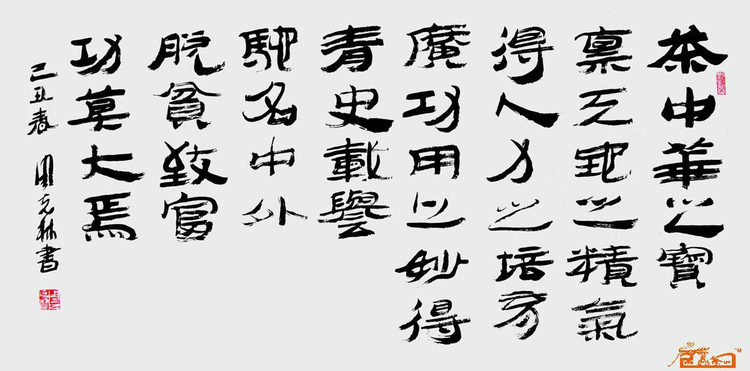 茶中華之寶
稟天地之精氣
得人力之培育
廣功用之妙得
青史載譽
馳名中外
脫貧致富
功莫大焉
己丑春 周克林書